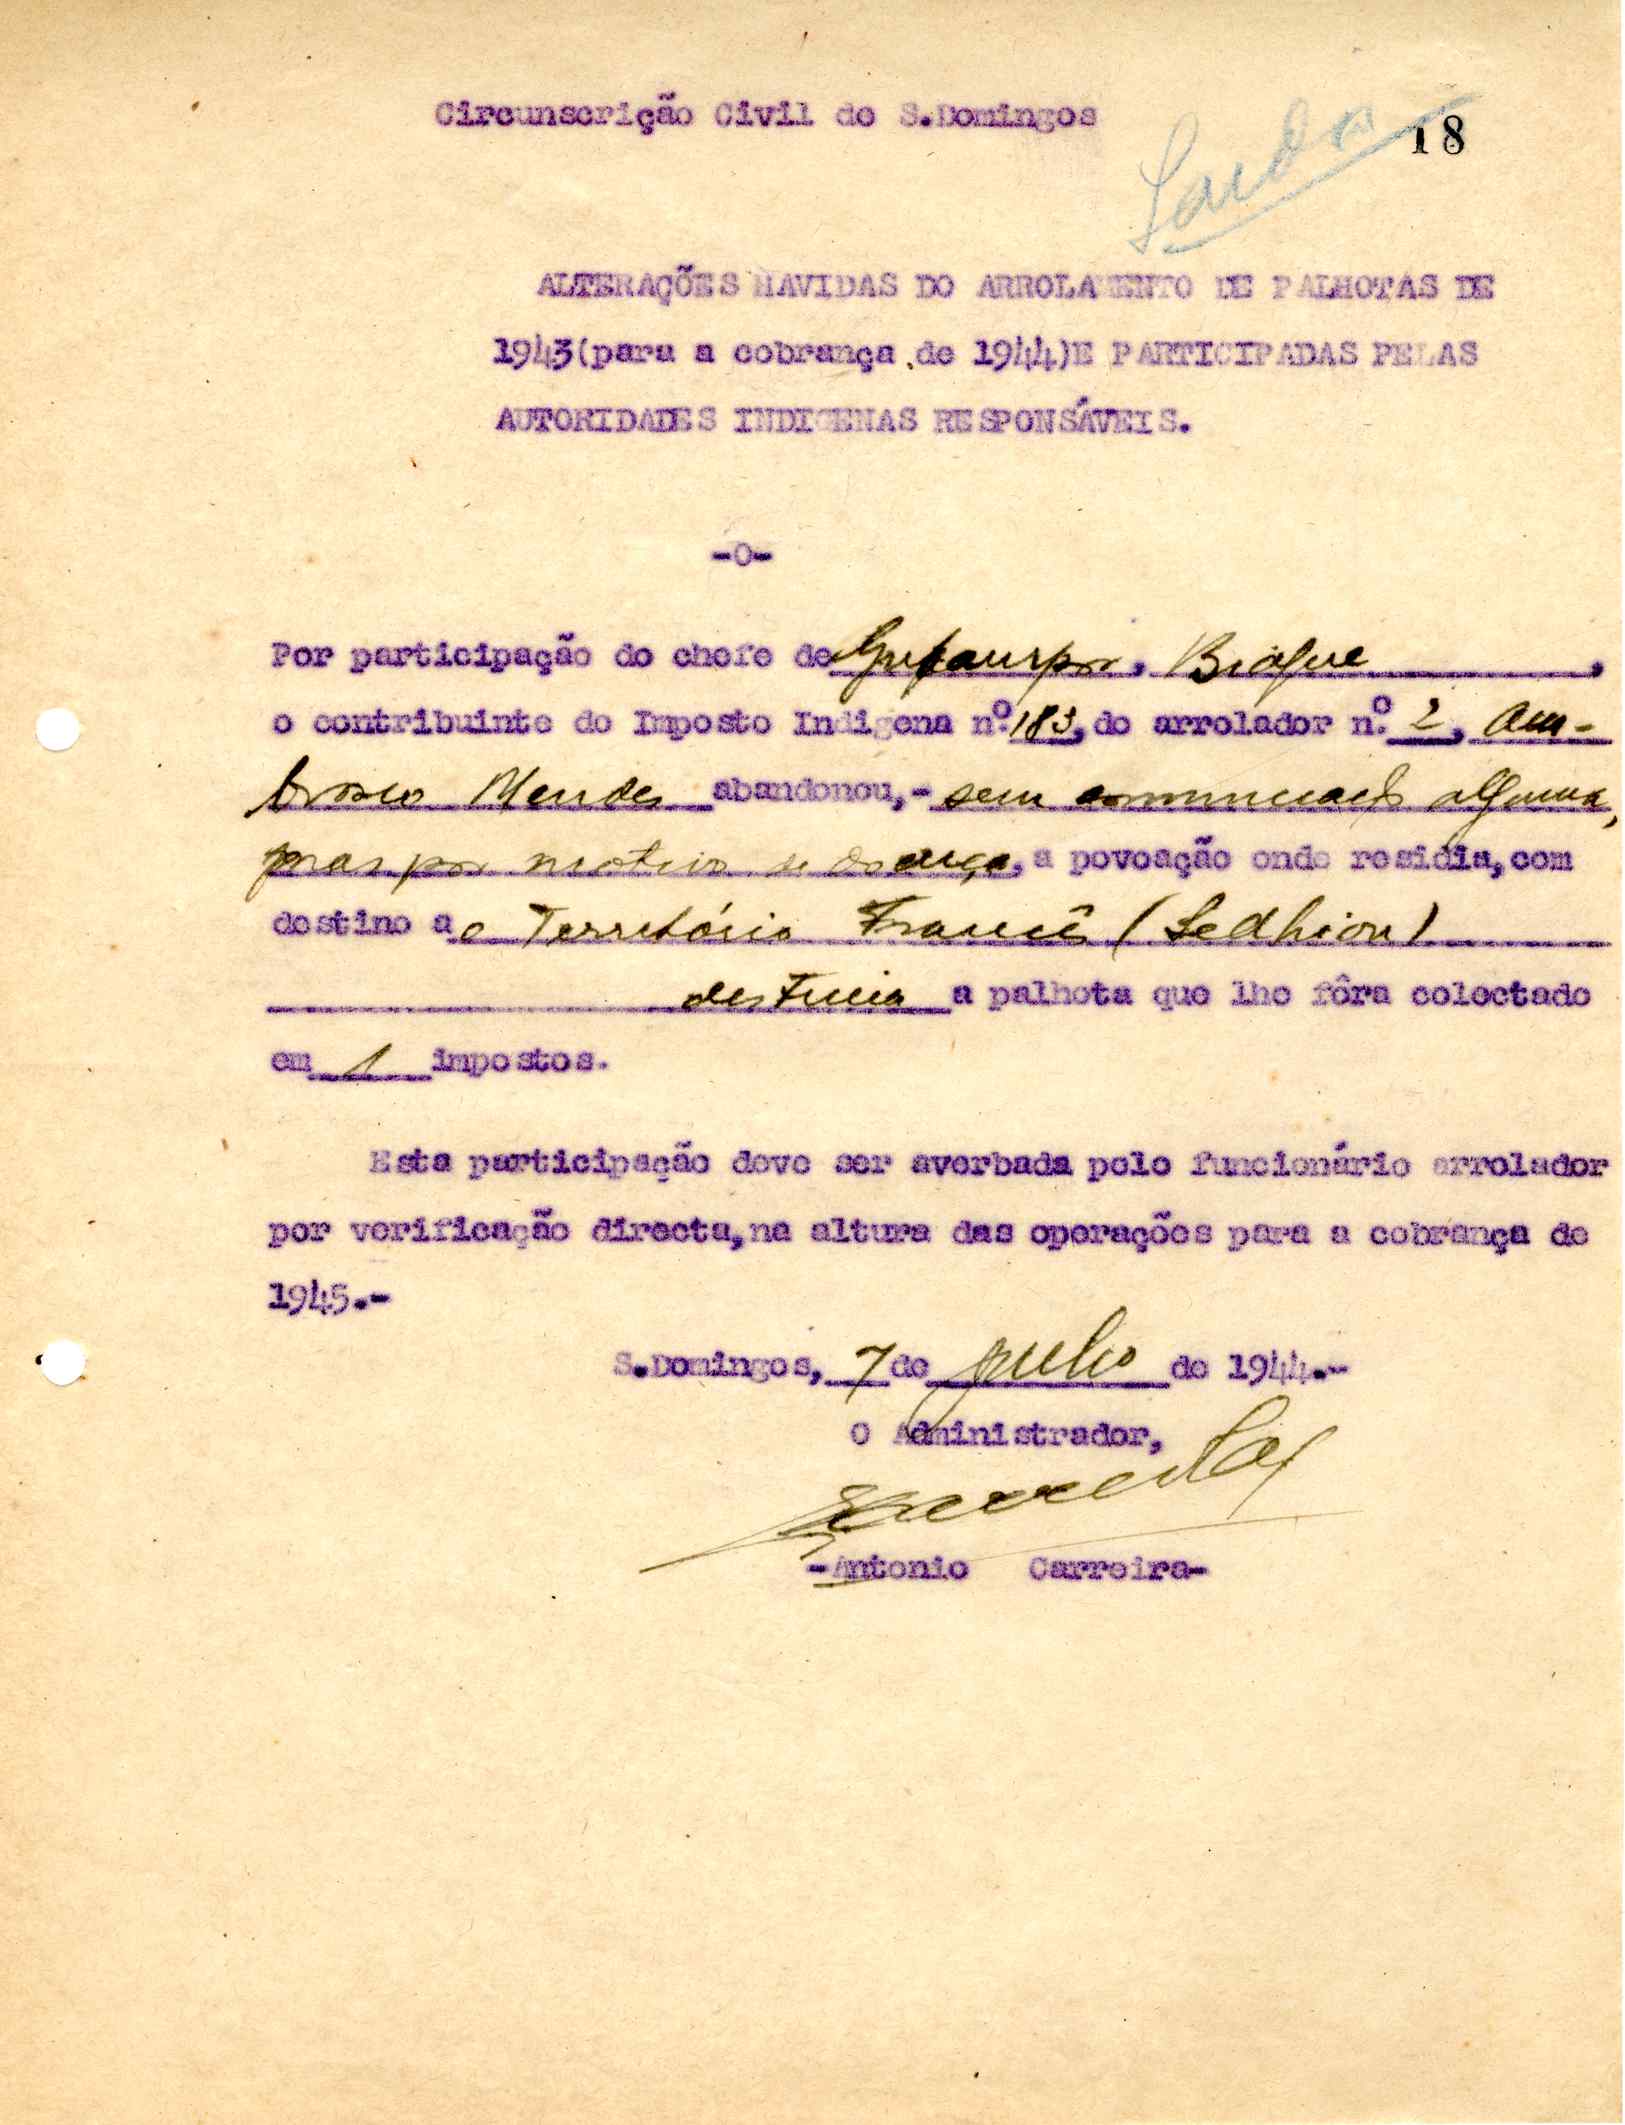 Circunscrição Civil de S.Domingos
18
ALTERAÇÕES HAVIDAS DO ARROLAMENTO DE PALHOTAS DE
1943(para a cobrança de 1944)E PARTICIPADAS PELAS
AUTORIDADES INDIGENAS RESPONSÁVEIS.
-o-
Por participação do chefe de , Biágue ,
o contribuinte do Imposto Indigena nº.183, do arrolador nº. 2, Am-
brosio Mendes abandonou,- sem comunicação alguma,
mas por motivo de doença, a povoação onde residia, com
destino a o Território Francês (Sedhiou)
destruiu a palhota que lhe fôra colectado
em 1 impostos.
Esta participação deve ser averbada pelo funcionário arrolador
por verificação directa,na altura das operações para a cobrança de
1945.-
S.Domingos, 7 de julho de 1944.-
O Administrador,
-Antonio Carreira-